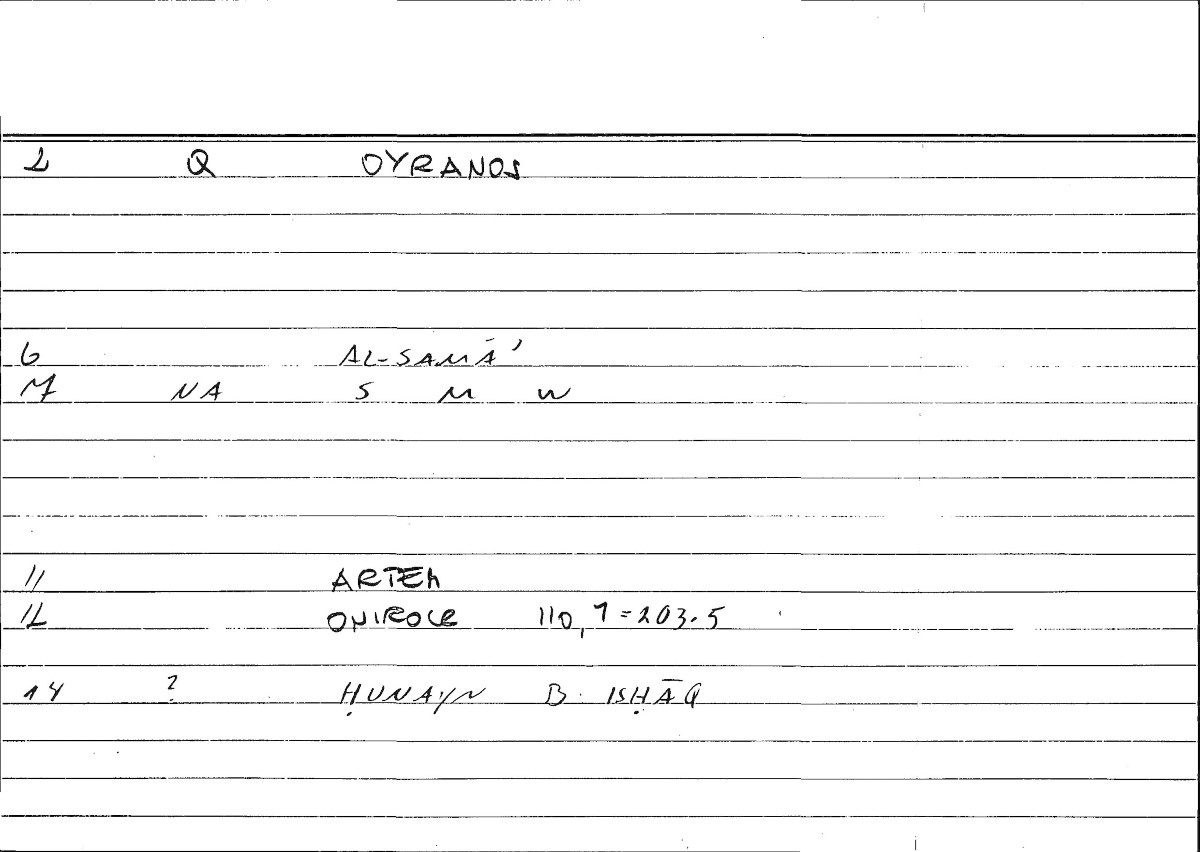 2 Q OYRANOS
6 AL-SAMĀʾ
7 NA S M W
11 ARTEM
12 ONIROCR 110,7=203.5
14 ? ḤUNAYN B. ISḤĀQ